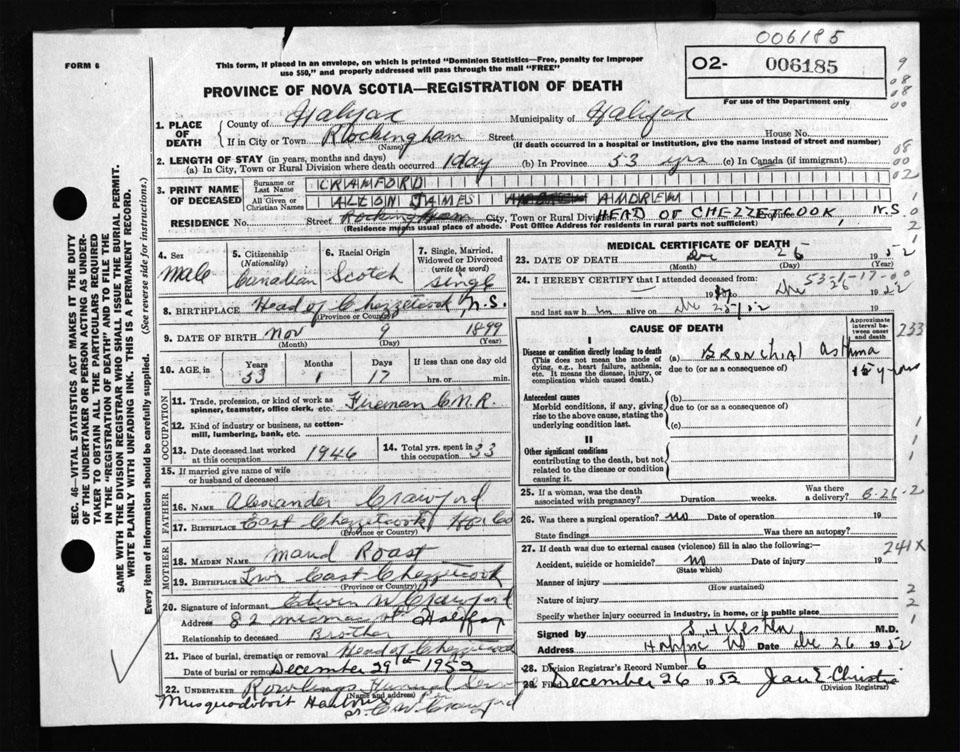 006185
FORM 6
This form, if placed in an envelope, on which is printed "Dominion Statistics—Free, penalty for improper
use $50," and properly addressed will pass through the mail "FREE"
O2- 006185
PROVINCE OF NOVA SCOTIA—REGISTRATION OF DEATH
For use of the Department only
1. PLACE OF DEATH
County of Halifax Municipality of Halifax
If in City or Town Rockingham Street House No.
(Name) (If death occurred in a hospital or institution, give the name instead of street and number)
2. LENGTH OF STAY (in years, months and days)
(a) In City, Town or Rural Division where death occurred 1 day (b) In Province 53 yrs (c) In Canada (if immigrant)
3. PRINT NAME OF DECEASED
Surname or Last Name CRAWFORD
All Given or Christian Names ALTON JAMES ANDREW
RESIDENCE No. Street Rockingham City, Town or Rural Division HEAD OF CHEZZETCOOK, Province N.S.
(Residence means usual place of abode. Post Office Address for residents in rural parts not sufficient)
4. Sex
male
5. Citizenship (Nationality)
Canadian
6. Racial Origin
Scotch
7. Single, Married, Widowed or Divorced (write the word)
single
8. BIRTHPLACE Head of Chezzetcook, N.S.
(Province or County)
9. DATE OF BIRTH Nov 9 1899
(Month) (Day) (Year)
10. AGE, in Years Months Days If less than one day old
53 1 17 hrs. or min.
OCCUPATION
11. Trade, profession, or kind of work as spinner, teamster, office clerk, etc. Fireman C.N.R.
12. Kind of industry or business, as cotton-mill, lumbering, bank, etc.
13. Date deceased last worked at this occupation 1946
14. Total yrs. spent in this occupation 33
15. If married give name of wife or husband of deceased
FATHER
16. NAME Alexander Crawford
17. BIRTHPLACE East Chezzetcook Hfx Co
(Province or Country)
MOTHER
18. MAIDEN NAME Maud Roast
19. BIRTHPLACE Lwr East Chezzetcook
(Province or Country)
20. Signature of informant Edwin W Crawford
Address 82 Micmac St Halifax
Relationship to deceased Brother
21. Place of burial, cremation or removal Head of Chezzetcook
Date of burial or removal December 29th 1952
22. UNDERTAKER Rowlings Funeral
(Name and address)
Musquodoboit Harbour
Crawford
MEDICAL CERTIFICATE OF DEATH
23. DATE OF DEATH Dec 26 1952
(Month) (Day) (Year)
24. I HEREBY CERTIFY that I attended deceased from:
53-1-17-00
19 to Dec 26 1952
and last saw h im alive on Dec 25/52
CAUSE OF DEATH
Approximate interval between onset and death
233
I
Disease or condition directly leading to death
(This does not mean the mode of dying, e.g., heart failure, asthenia, etc. It means the disease, injury, or complication which caused death.)
(a) Bronchial asthma
15 years
due to (or as a consequence of)
Antecedent causes
Morbid conditions, if any, giving rise to the above cause, stating the underlying condition last.
(b)
due to (or as a consequence of)
(c)
II
Other significant conditions
contributing to the death, but not related to the disease or condition causing it.
25. If a woman, was the death associated with pregnancy? Duration weeks. Was there a delivery?
6-26-2
26. Was there a surgical operation? no Date of operation 19
State findings Was there an autopsy?
27. If death was due to external causes (violence) fill in also the following:—
241X
Accident, suicide or homicide? no Date of injury 19
(State which)
Manner of injury
(How sustained)
Nature of injury
Specify whether injury occurred in industry, in home, or in public place
Signed by M.D.
Address Date Dec 26 1952
28. Division Registrar's Record Number 6
29. Filed December 26 1952 Jean E. Christie
(Division Registrar)
SEC. 46—VITAL STATISTICS ACT MAKES IT THE DUTY
OF THE UNDERTAKER OR PERSON ACTING AS UNDER-
TAKER TO OBTAIN ALL THE PARTICULARS REQUIRED
IN THE "REGISTRATION OF DEATH" AND TO FILE THE
SAME WITH THE DIVISION REGISTRAR WHO SHALL ISSUE THE BURIAL PERMIT.
WRITE PLAINLY WITH UNFADING INK. THIS IS A PERMANENT RECORD.
Every item of information should be carefully supplied. (See reverse side for instructions.)